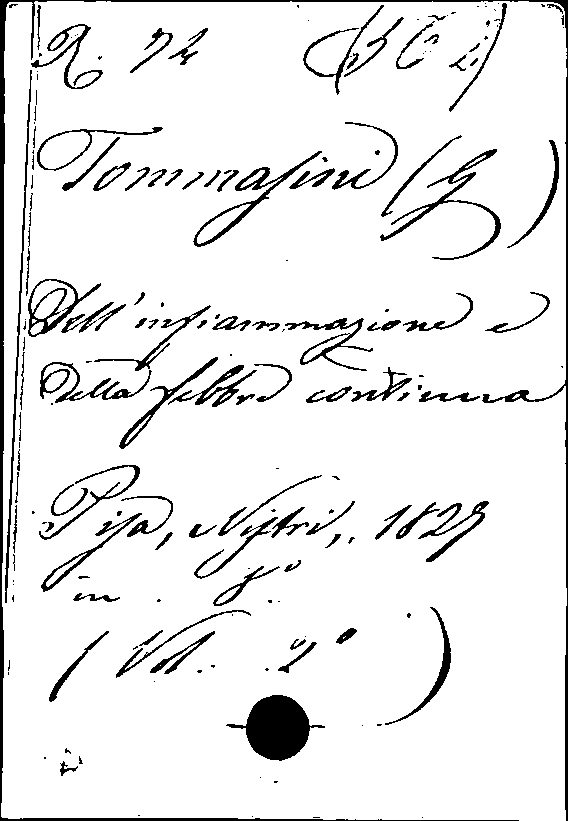 R. 72
Tommasini (G)
Dell'infiammazione e
della febbre continua
Pisa, Nistri, 1829
in 8°
(Vol. 2°)